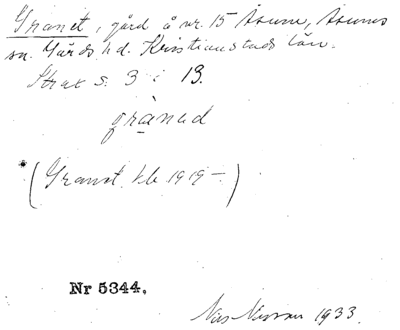 Granet, gård å nr. 15 Åsum, Åsums
sn. Gärds hd. Kristianstads län.
Strax s. 3 i 13.
grånad
(Granet, kb 1919-)
Nr 5344.
Nils 1933.